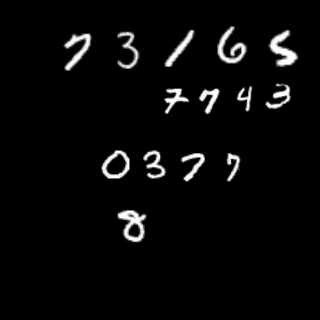 73165
7743
0377
8